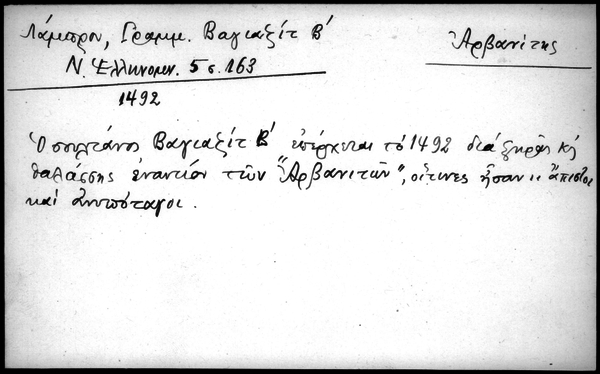 Λάμπρου, Γραμμ. Βαγιαζίτ Β'
Ἀρβανίτης
Ν. Ἑλληνομν. 5 σ. 163
1492
Ὁ σουλτάνος Βαγιαζίτ Β' ἐπέρχεται τό 1492 διά ξηρᾶς κ
θαλάσσης ἐναντίον τῶν "Ἀρβανιτῶν", οἵτινες ἦσαν "ἄπιστοι
καί ἀνυπόταχτοι.